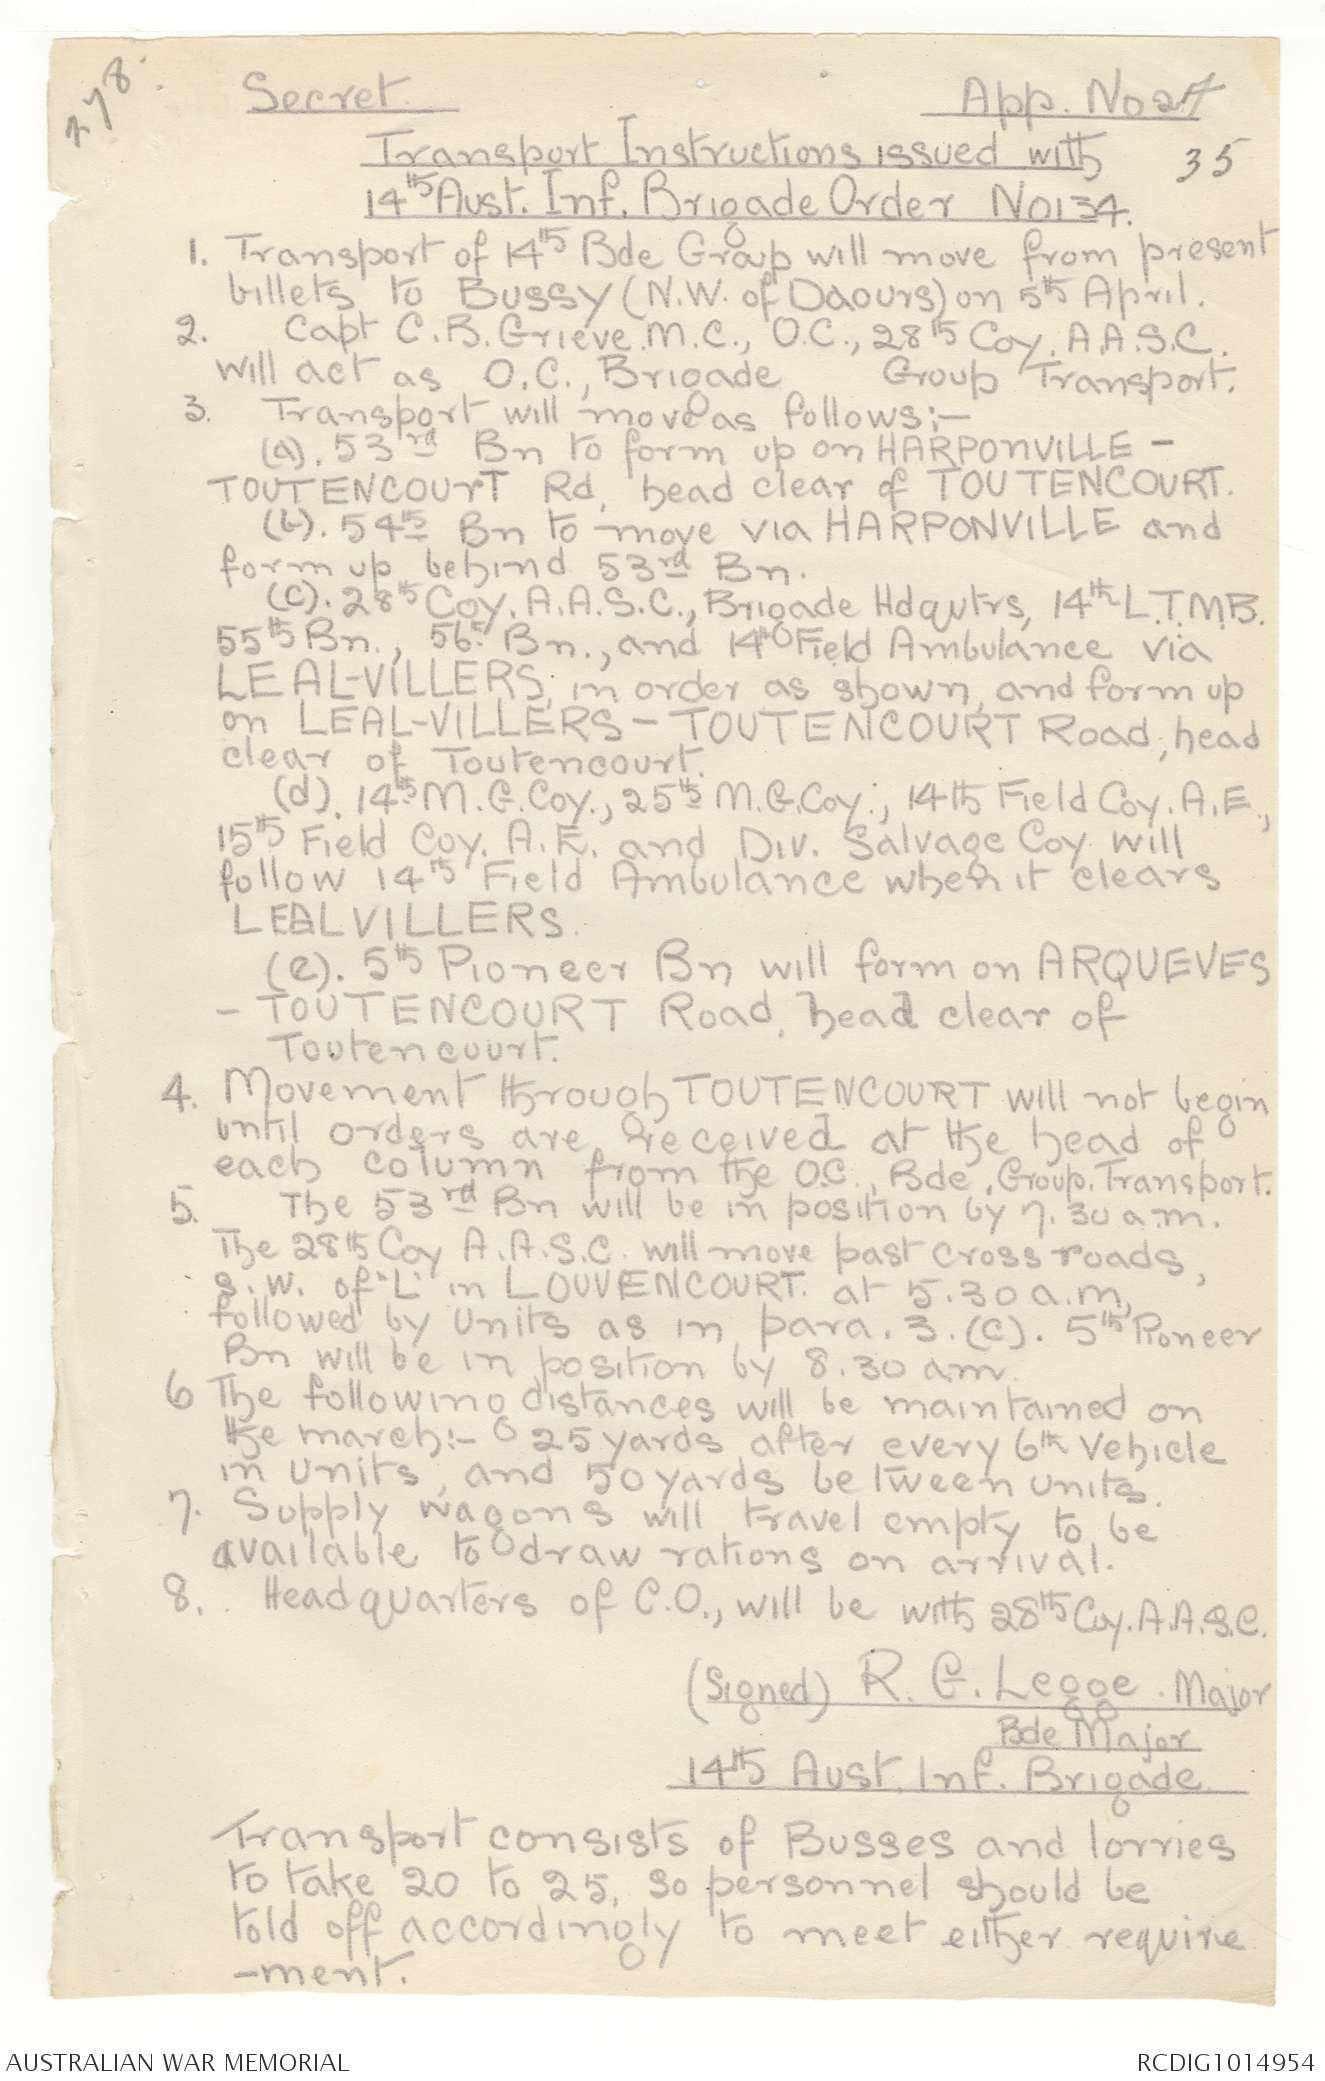 278.
Secret.
App. No 2A
35
Transport Instructions issued with
14th Aust. Inf. Brigade Order No 134.
1. Transport of 14th Bde Group will move from present
billets to Bussy (N.W. of Daours) on 5th April.
2. Capt C.B. Grieve M.C., O.C., 28th Coy. A.A.S.C.
will act as O.C., Brigade Group Transport.
3. Transport will move as follows:-
(a). 53rd Bn to form up on HARPONVILLE -
TOUTENCOURT Rd, head clear of TOUTENCOURT.
(b). 54th Bn to move via HARPONVILLE and
form up behind 53rd Bn.
(c). 28th Coy. A.A.S.C., Brigade Hdqutrs, 14th L.T.M.B.
55th Bn., 56th Bn., and 14th Field Ambulance via
LEAL-VILLERS, in order as shown, and form up
on LEAL-VILLERS - TOUTENCOURT Road, head
clear of Toutencourt.
(d). 14th M.G. Coy., 25th M.G. Coy., 14th Field Coy. A.E.,
15th Field Coy. A.E. and Div. Salvage Coy will
follow 14th Field Ambulance when it clears
LEALVILLERS.
(e). 5th Pioneer Bn will form on ARQUEVES
- TOUTENCOURT Road, head clear of
Toutencourt.
4. Movement through TOUTENCOURT will not begin
until orders are received at the head of
each column from the O.C., Bde, Group. Transport.
5. The 53rd Bn will be in position by 7.30 a.m.
The 28th Coy A.A.S.C. will move past cross roads,
S.W. of "L" in LOUVENCOURT. at 5.30 a.m,
followed by Units as in para. 3. (c). 5th Pioneer
Bn will be in position by 8.30 a.m.
6 The following distances will be maintained on
the march:- 25 yards after every 6th Vehicle
in Units, and 50 yards between units.
7. Supply wagons will travel empty to be
available to draw rations on arrival.
8. Headquarters of C.O., will be with 28th Coy. A.A.S.C.
(Signed) R. G. Legge. Major
Bde Major
14th Aust. Inf. Brigade.
Transport consists of Busses and lorries
to take 20 to 25, so personnel should be
told off accordingly to meet either require
-ment.
AUSTRALIAN WAR MEMORIAL
RCDIG1014954